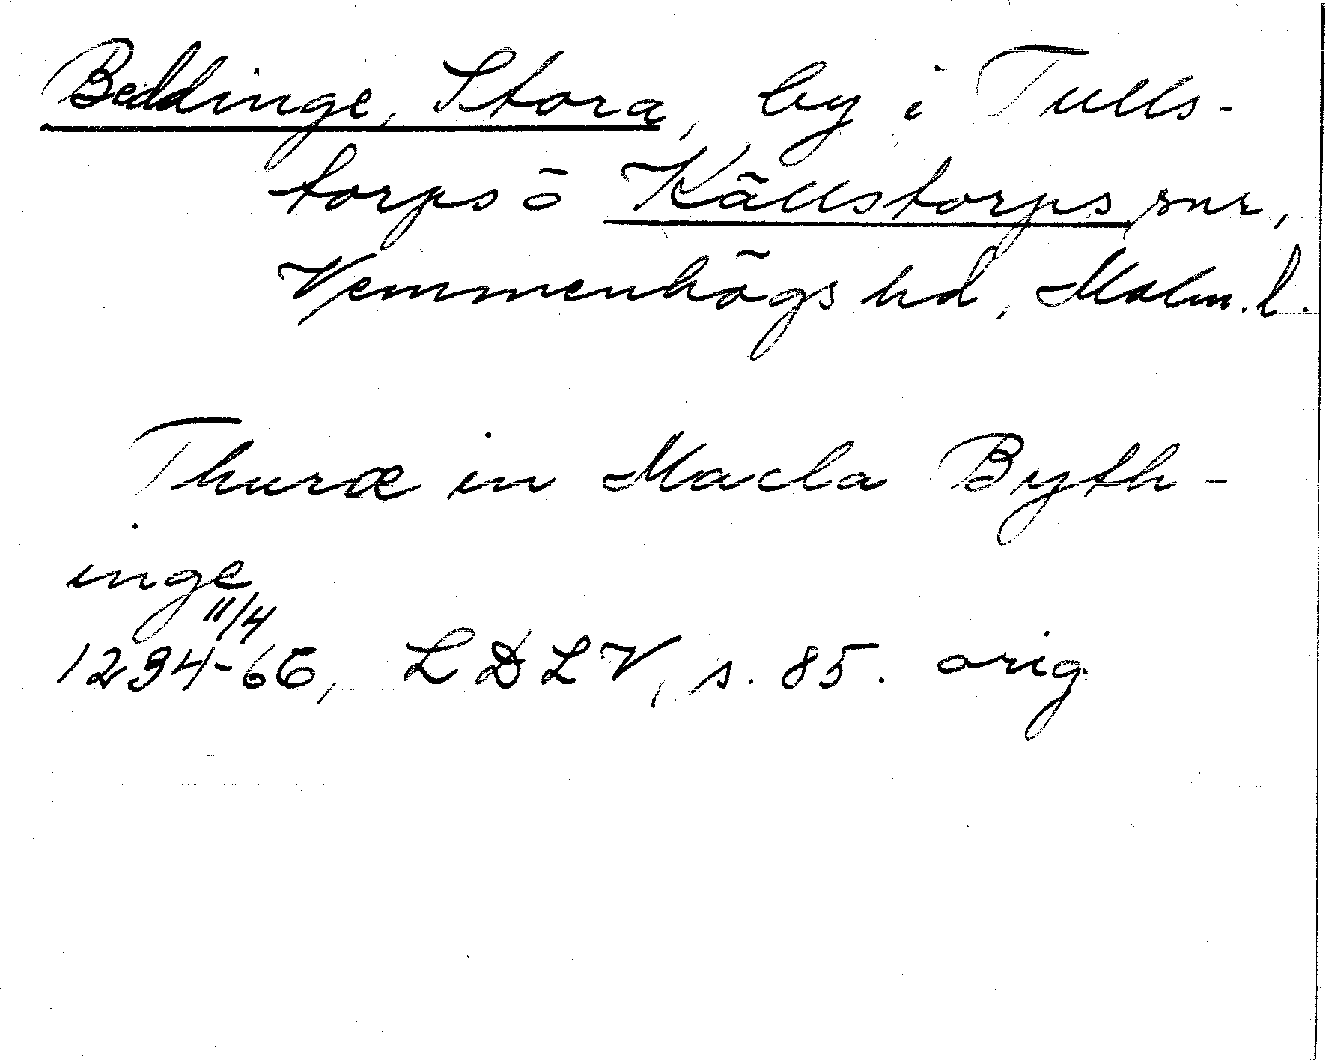 Beddinge, Stora, by i Tulls-
torps o Källstorps snr,
Vemmenhögs hd, Malm. l.
Thuræ in Macla Byth-
inge
11/4
1234-66, LDLV, s. 85. orig